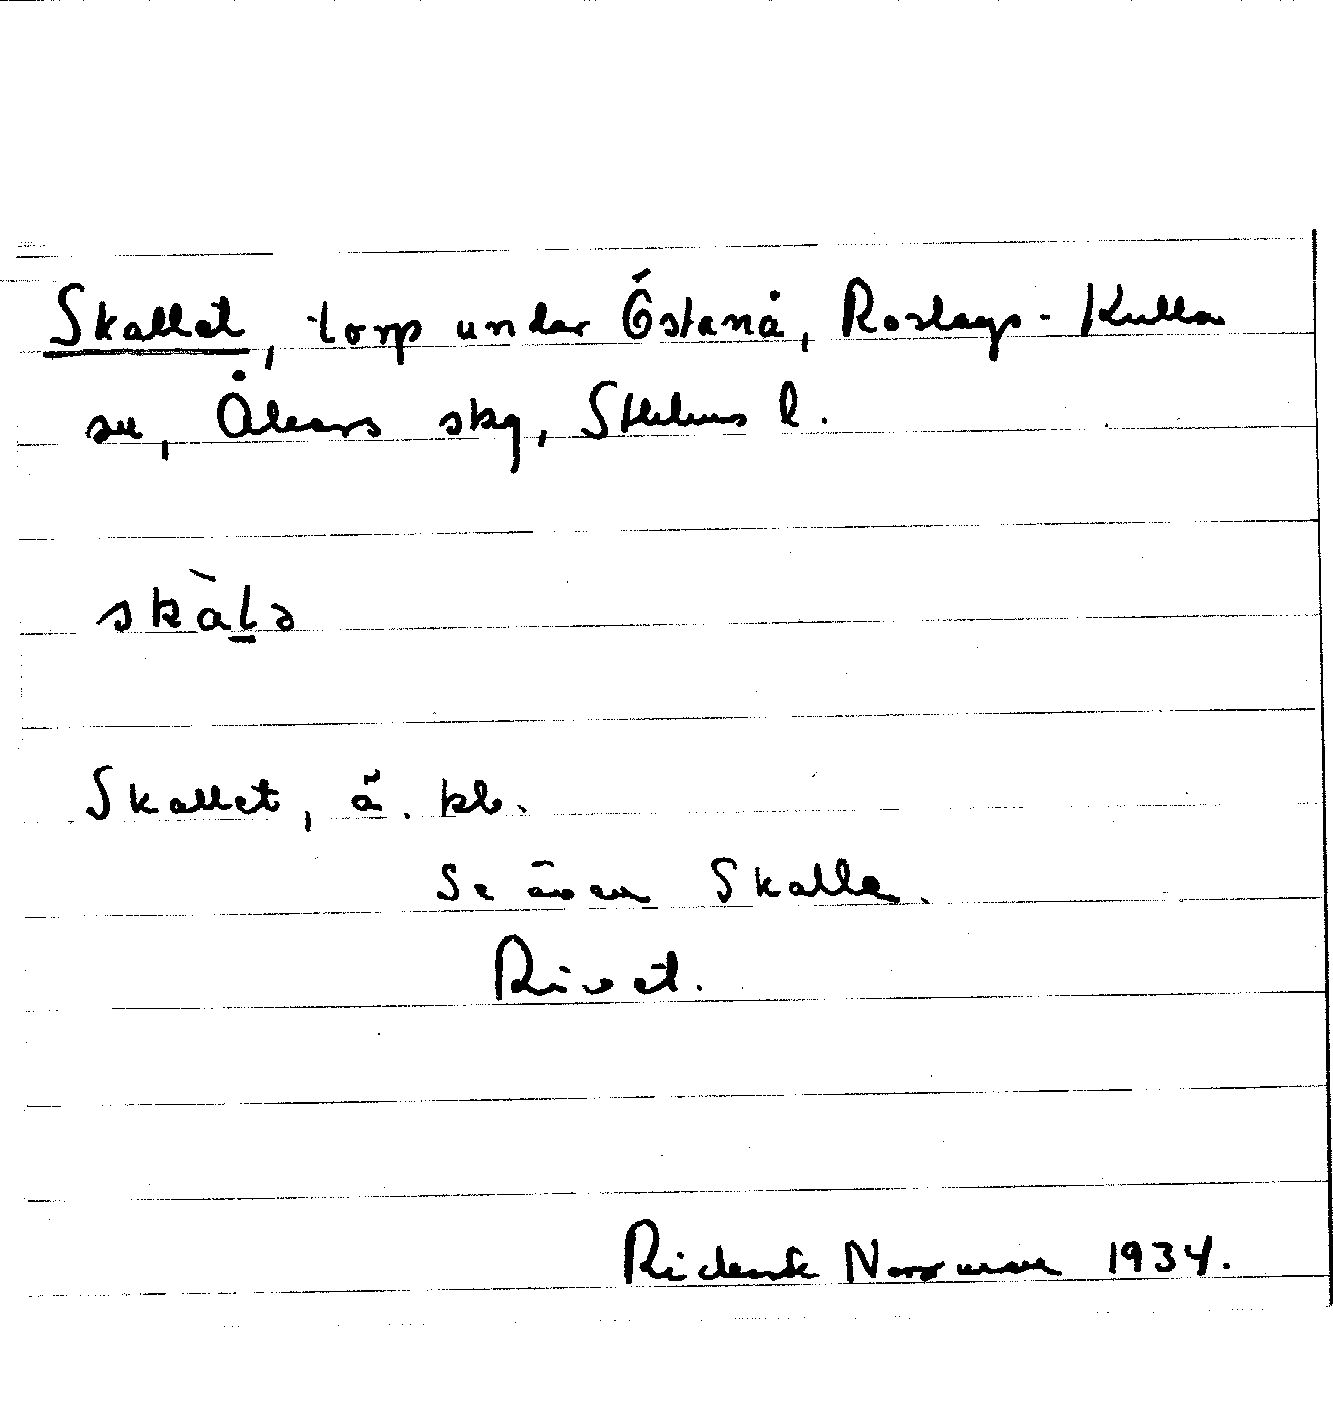 Skallet, torp under Östanå, Roslags-Kulla
sn, Åkers skg, Sthlms l.
skàlə
Skallet, ä. kb.
Se även Skalla.
Rivet.
Rickard Norrman 1934.